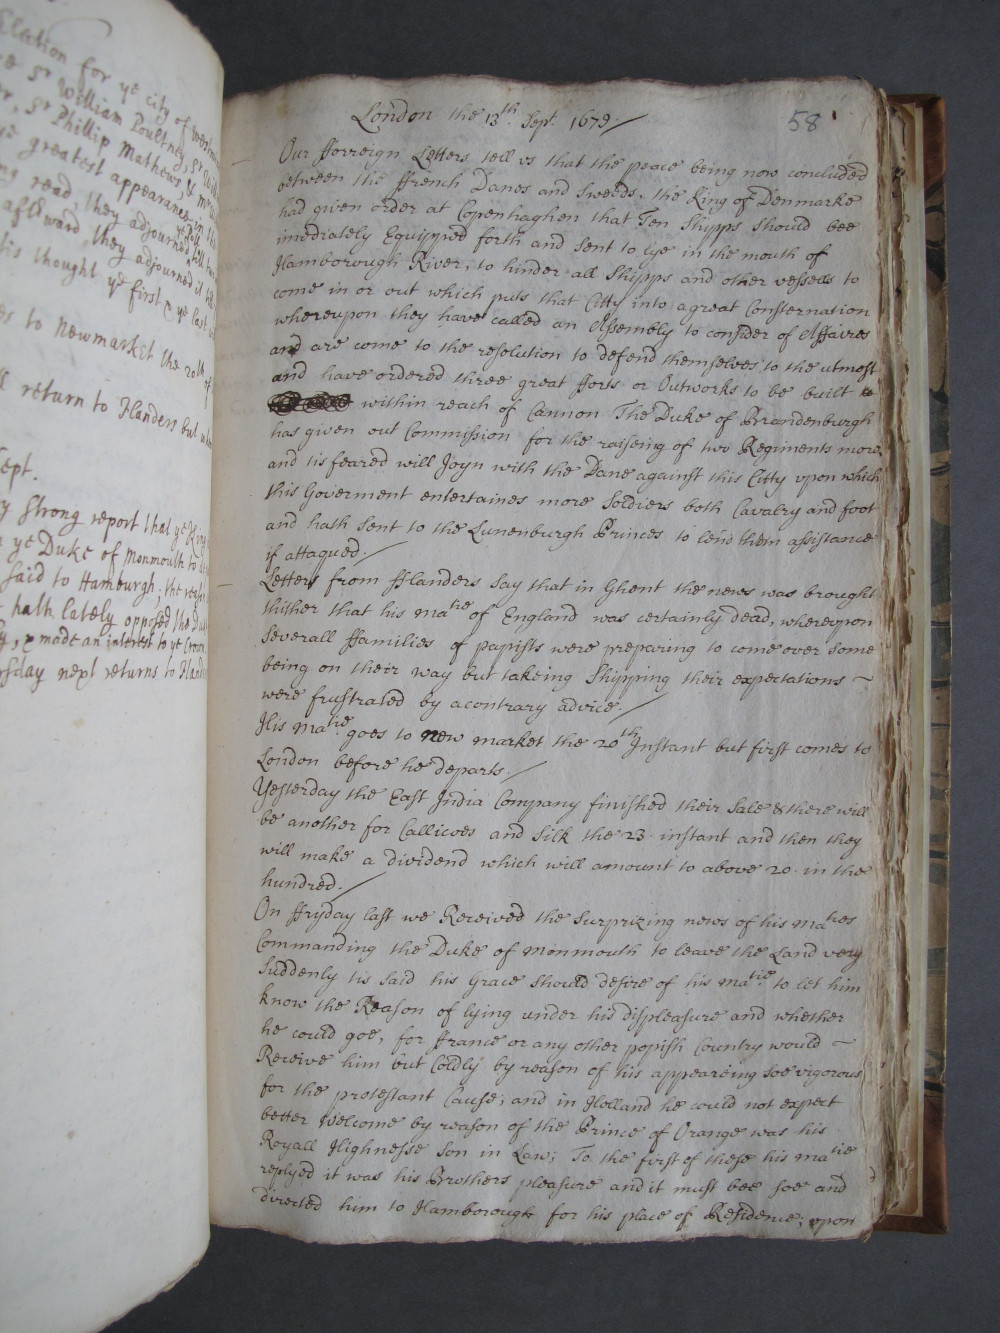 Election for ye city of
Sr William Poultney, Sr
Sr Phillip Mathews, &
greatest appearance in
read, they adjourned till
afterward they adjourned it
his thought ye first & ye last
to Newmarket the 20th of
return to Flanders but
Sept.
strong report that ye King
ye Duke of Monmouth to
said to Hamburgh; the
hath lately opposed the
& made an interest to ye
next returns to
58
London the 13th. Sept. 1679./
Our fforreign Letters tell vs that the peace being now concluded
between the ffrench Danes and Sweeds, the King of Denmarke
had given order at Copenhaghen that Ten Shipps should bee
imediately Equipped forth and sent to lye in the mouth of
Hamborough River, to hinder all Shipps and other vessells to
come in or out which puts that Citty into a great Consternation
wherevpon they have called an Assembly to consider of Affaires
and are come to the resolution to defend themselves to the utmost
and have ordered three great fforts or Outworks to be built
within reach of Cannon The Duke of Brandenburgh
has given out Commission for the raiseing of two Regiments more
and tis feared will Joyn with the Dane against this Citty vpon which
this Goverment entertaines more Soldiers both Cavalry and foot
and hath sent to the Lunenburgh Princes to lend them assistance
if attaqued./
Letters from fflanders say that in Ghent the news was brought
thither that his Matie of England was certainly dead, wherevpon
severall ffamilies of papists were prepareing to come over some
being on their way but takeing Shipping their expectations ~
were frustrated by a contrary advice./
His Matie goes to new market the 20th Instant but first comes to
London before he departs./
Yesterday the East India Company finished their Sale & there will
be another for Callicoes and Silk the 23. instant and then they
will make a dividend which will amount to above 20 in the
hundred./
On ffryday last we Received the surprizing news of his Maties
Commanding the Duke of Monmouth to leave the Land very
Suddenly tis said his Grace should desire of his Matie to let him
know the Reason of lying under his displeasure and whether
he could goe, for ffrance or any other popish Country would ~
Receive him but Coldly by reason of his appeareing soe vigorous
for the protestant Cause; and in Holland he could not expect
better Welcome by reason of the Prince of Orange was his
Royall Highnesse Son in Law; To the first of these his Matie
replyed it was his Brothers pleasure and it must bee soe and
directed him to Hamborough for his place of Residence; vpon